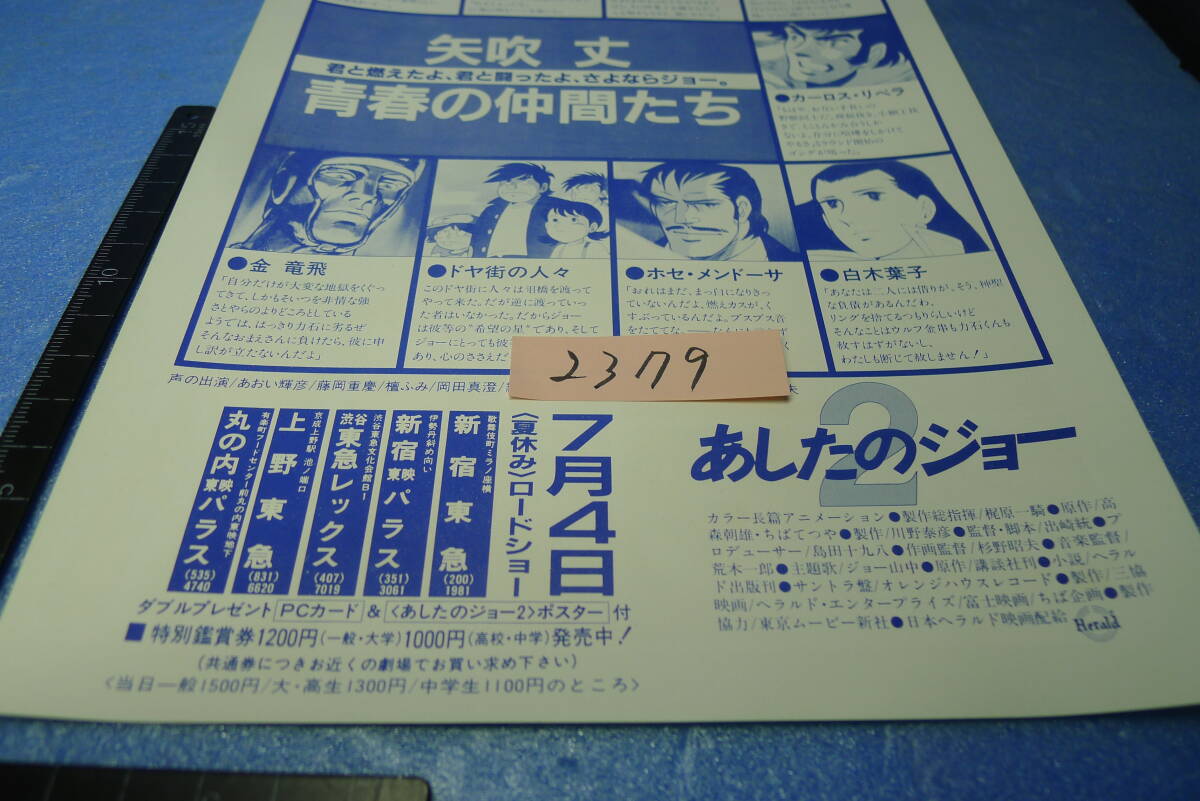 矢吹 丈
君と燃えたよ、君と闘ったよ、さよならジョー。
青春の仲間たち
●カーロス・リベラ
●金 竜飛
「自分だけが大変な地獄をくぐっ
てきて、しかもそいつを非情な強
さとやらのよりどころとしている
ようでは、はっきり力石に劣るぜ
そんなおまえさんに負けたら、彼に申
し訳が立たないんだよ」
●ドヤ街の人々
このドヤ街に人々は泪橋を渡って
やって来た。だが逆に渡っていっ
た者はいなかった。だからジョー
は彼等の“希望の星”であり、そして
ジョーにとっても彼
あり、心のささえだ
●ホセ・メンドーサ
「おれはまだ、まっ白になりきっ
ていないんだよ、燃えカスが、く
すぶっているんだよ。ブスブス音
をたててな、
●白木葉子
「あなたは二人には借りが、そう、神聖
な負債があるんだわ。
リングを捨てるつもりらしいけど
そんなことはウルフ金串も力石くんも
赦すはずがないし、
わたしも断じて赦しません!」
声の出演/あおい輝彦/藤岡重慶/檀ふみ/岡田真澄/
2379
7月4日
〈夏休み〉ロードショー
歌舞伎町ミラノ座横
新宿東急
(200)
1981
伊勢丹斜め向い
新宿東映パラス
(351)
3061
渋谷東急文化会館B1
渋谷東急レックス
(407)
7019
京成上野駅 池ノ端口
上野東急
(831)
6620
有楽町フードセンター前丸の内東映地下
丸の内東映パラス
(535)
4740
ダブルプレゼント PCカード &〈あしたのジョー2〉ポスター 付
■特別鑑賞券1200円(一般・大学)1000円(高校・中学)発売中!
(共通券につきお近くの劇場でお買い求め下さい)
〈当日一般1500円/大・高生1300円/中学生1100円のところ〉
あしたのジョー
2
カラー長篇アニメーション●製作総指揮/梶原一騎●原作/高
森朝雄・ちばてつや●製作/川野泰彦●監督・脚本/出崎統●プ
ロデューサー/島田十九八●作画監督/杉野昭夫●音楽監督/
荒木一郎●主題歌/ジョー山中●原作/講談社刊●小説/ヘラル
ド出版刊●サントラ盤/オレンジハウスレコード●製作/三協
映画/ヘラルド・エンタープライズ/富士映画/ちば企画●製作
協力/東京ムービー新社●日本ヘラルド映画配給
Herald
10